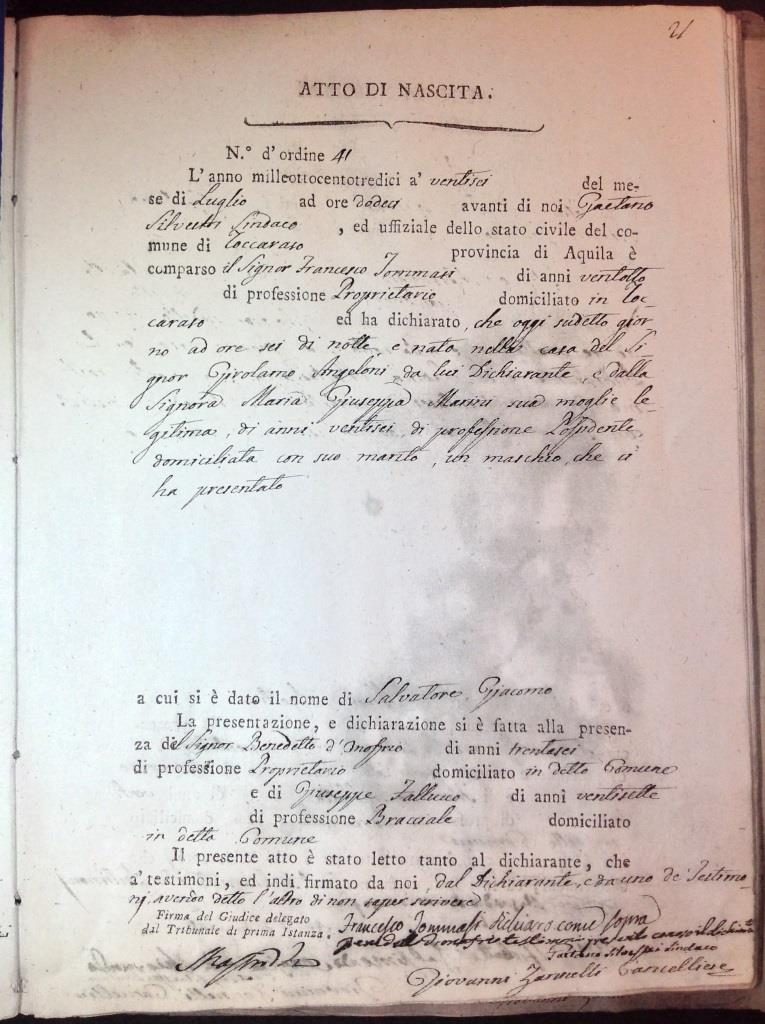 21
ATTO DI NASCITA.
N.° d'ordine 41
L'anno milleottocentotredici a' ventisei del me-
se di Luglio ad ore dodeci avanti di noi Gaetano
Silvestri Sindaco , ed uffiziale dello stato civile del co-
mune di Roccaraso provincia di Aquila è
comparso il Signor Francesco Tommasi di anni ventotto
di professione Proprietario domiciliato in Roc-
caraso ed ha dichiarato, che oggi sudetto gior
no ad ore sei di notte, è nato nella casa del Si
gnor Girolamo Angeloni, da lui Dichiarante, e dalla
Signora Maria Giuseppa Marini sua moglie le-
gitima, di anni ventisei, di professione Possidente
domiciliata con suo marito, un maschio, che ci
ha presentato
a cui si è dato il nome di Salvatore Giacomo
La presentazione, e dichiarazione si è fatta alla presen-
za del Signor Benedetto d'Onofrio di anni trentasei
di professione Proprietario domiciliato in detto Comune
e di Giuseppe di anni ventisette
di professione Bracciale domiciliato
in detto Comune
Il presente atto è stato letto tanto al dichiarante, che
a' testimoni, ed indi firmato da noi, dal Dichiarante, e da uno de' Testimo-
nj, avendo detto l'altro di non saper scrivere
Firma del Giudice delegato
dal Tribunale di prima Istanza.
Francesco Tommasi dichiaro come sopra
Gaetano Silvestri Sindaco
Giovanni Zannelli Cancelliere